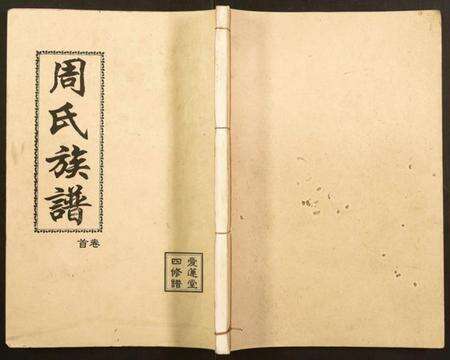 周氏族譜
卷首
愛蓮堂
四修譜